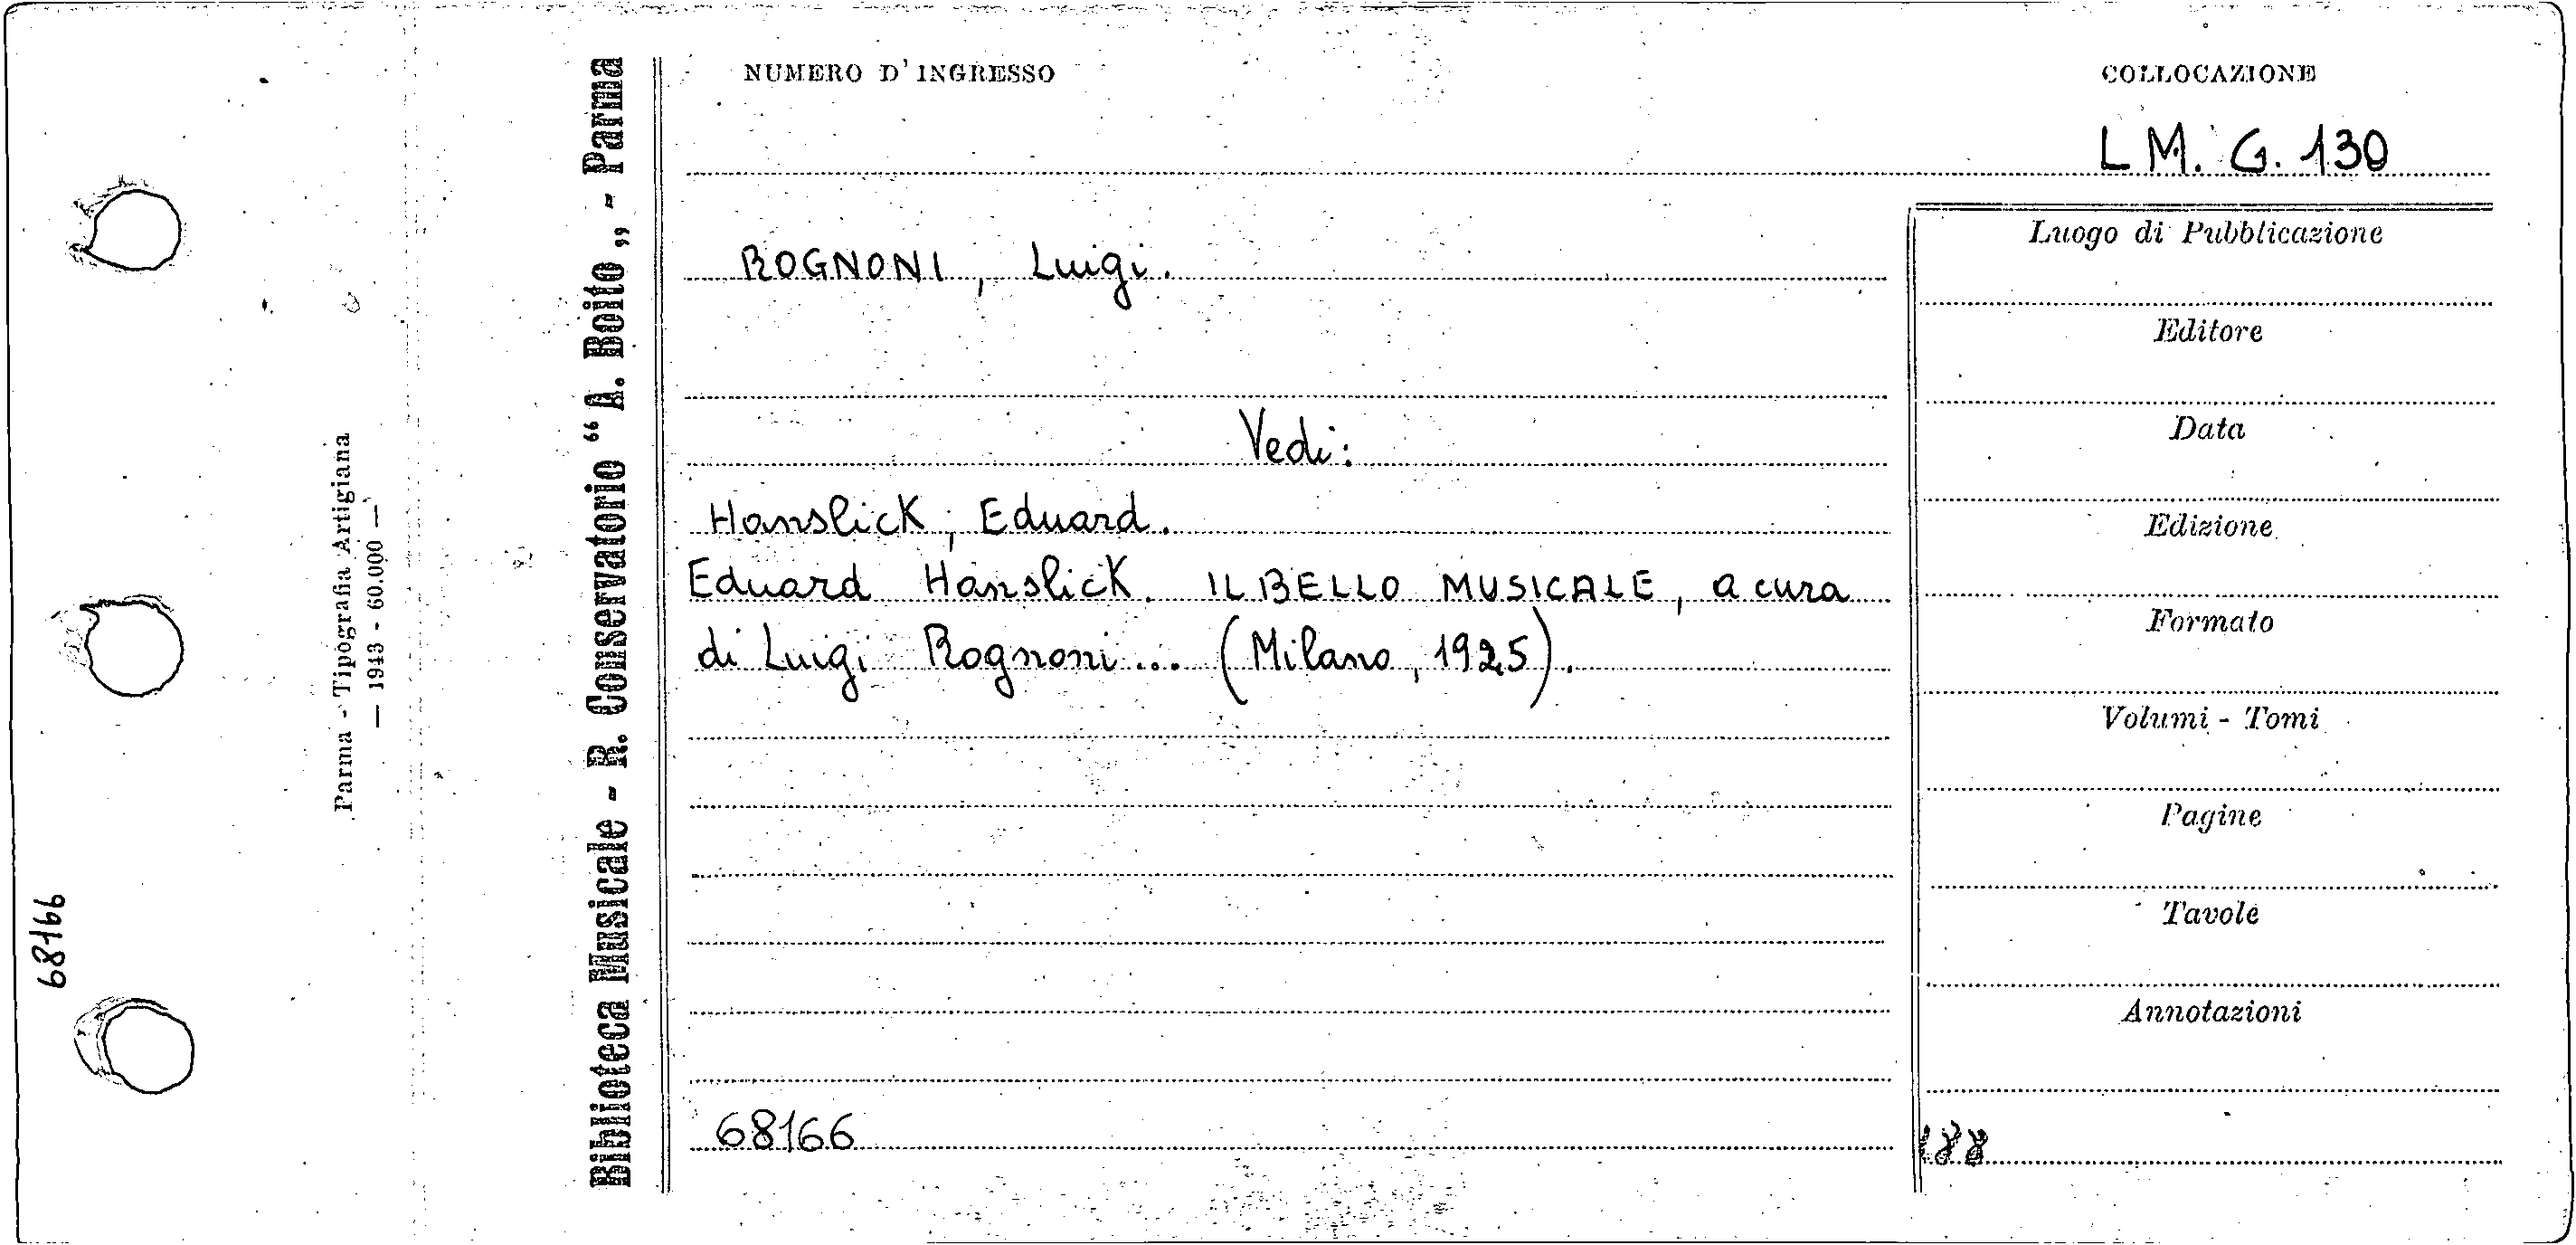 NUMERO D'INGRESSO
COLLOCAZIONE
LM. G. 130
ROGNONI, Luigi.
Vedi:
Hanslick, Eduard.
Eduard Hanslick. IL BELLO MUSICALE, a cura
di Luigi Rognoni... (Milano, 1925).
68166
Luogo di Pubblicazione
Editore
Data
Edizione
Formato
Volumi - Tomi
Pagine
Tavole
Annotazioni
188
Biblioteca Musicale - R. Conservatorio “A. Boito„ - Parma
Parma - Tipografia Artigiana
— 1943 - 60.000 —
68166